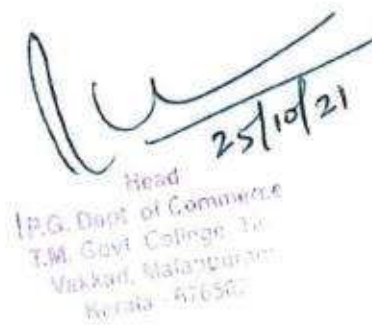 25/10/21
Head
P.G. Dept of Commerce
T.M. Govt College
Vakkad, Malappuram
Kerala - 676502